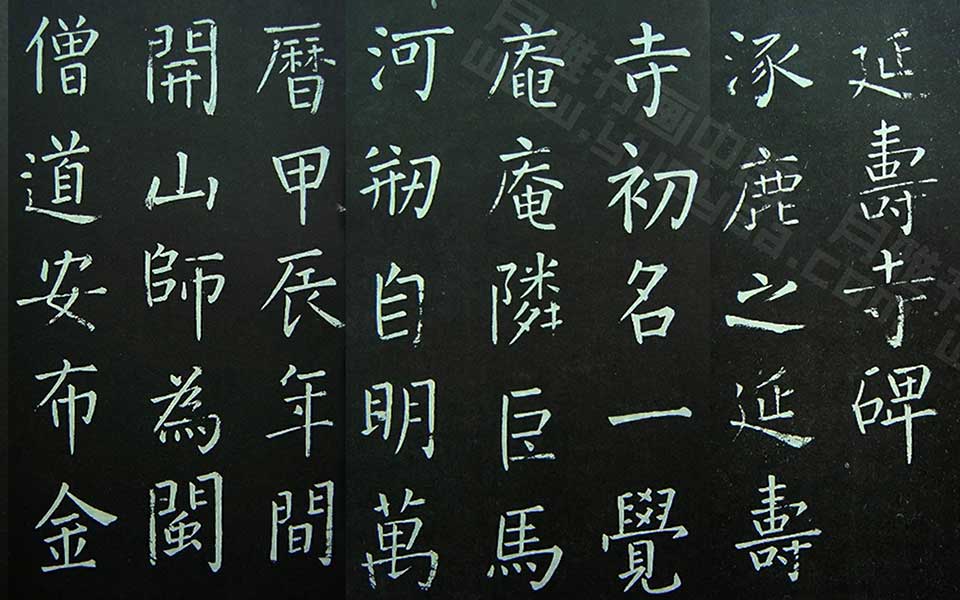 延壽寺碑
涿鹿之延壽
寺初名一覺
庵庵隣巨馬
河剏自明萬
暦甲辰年間
開山師為閩
僧道安布金